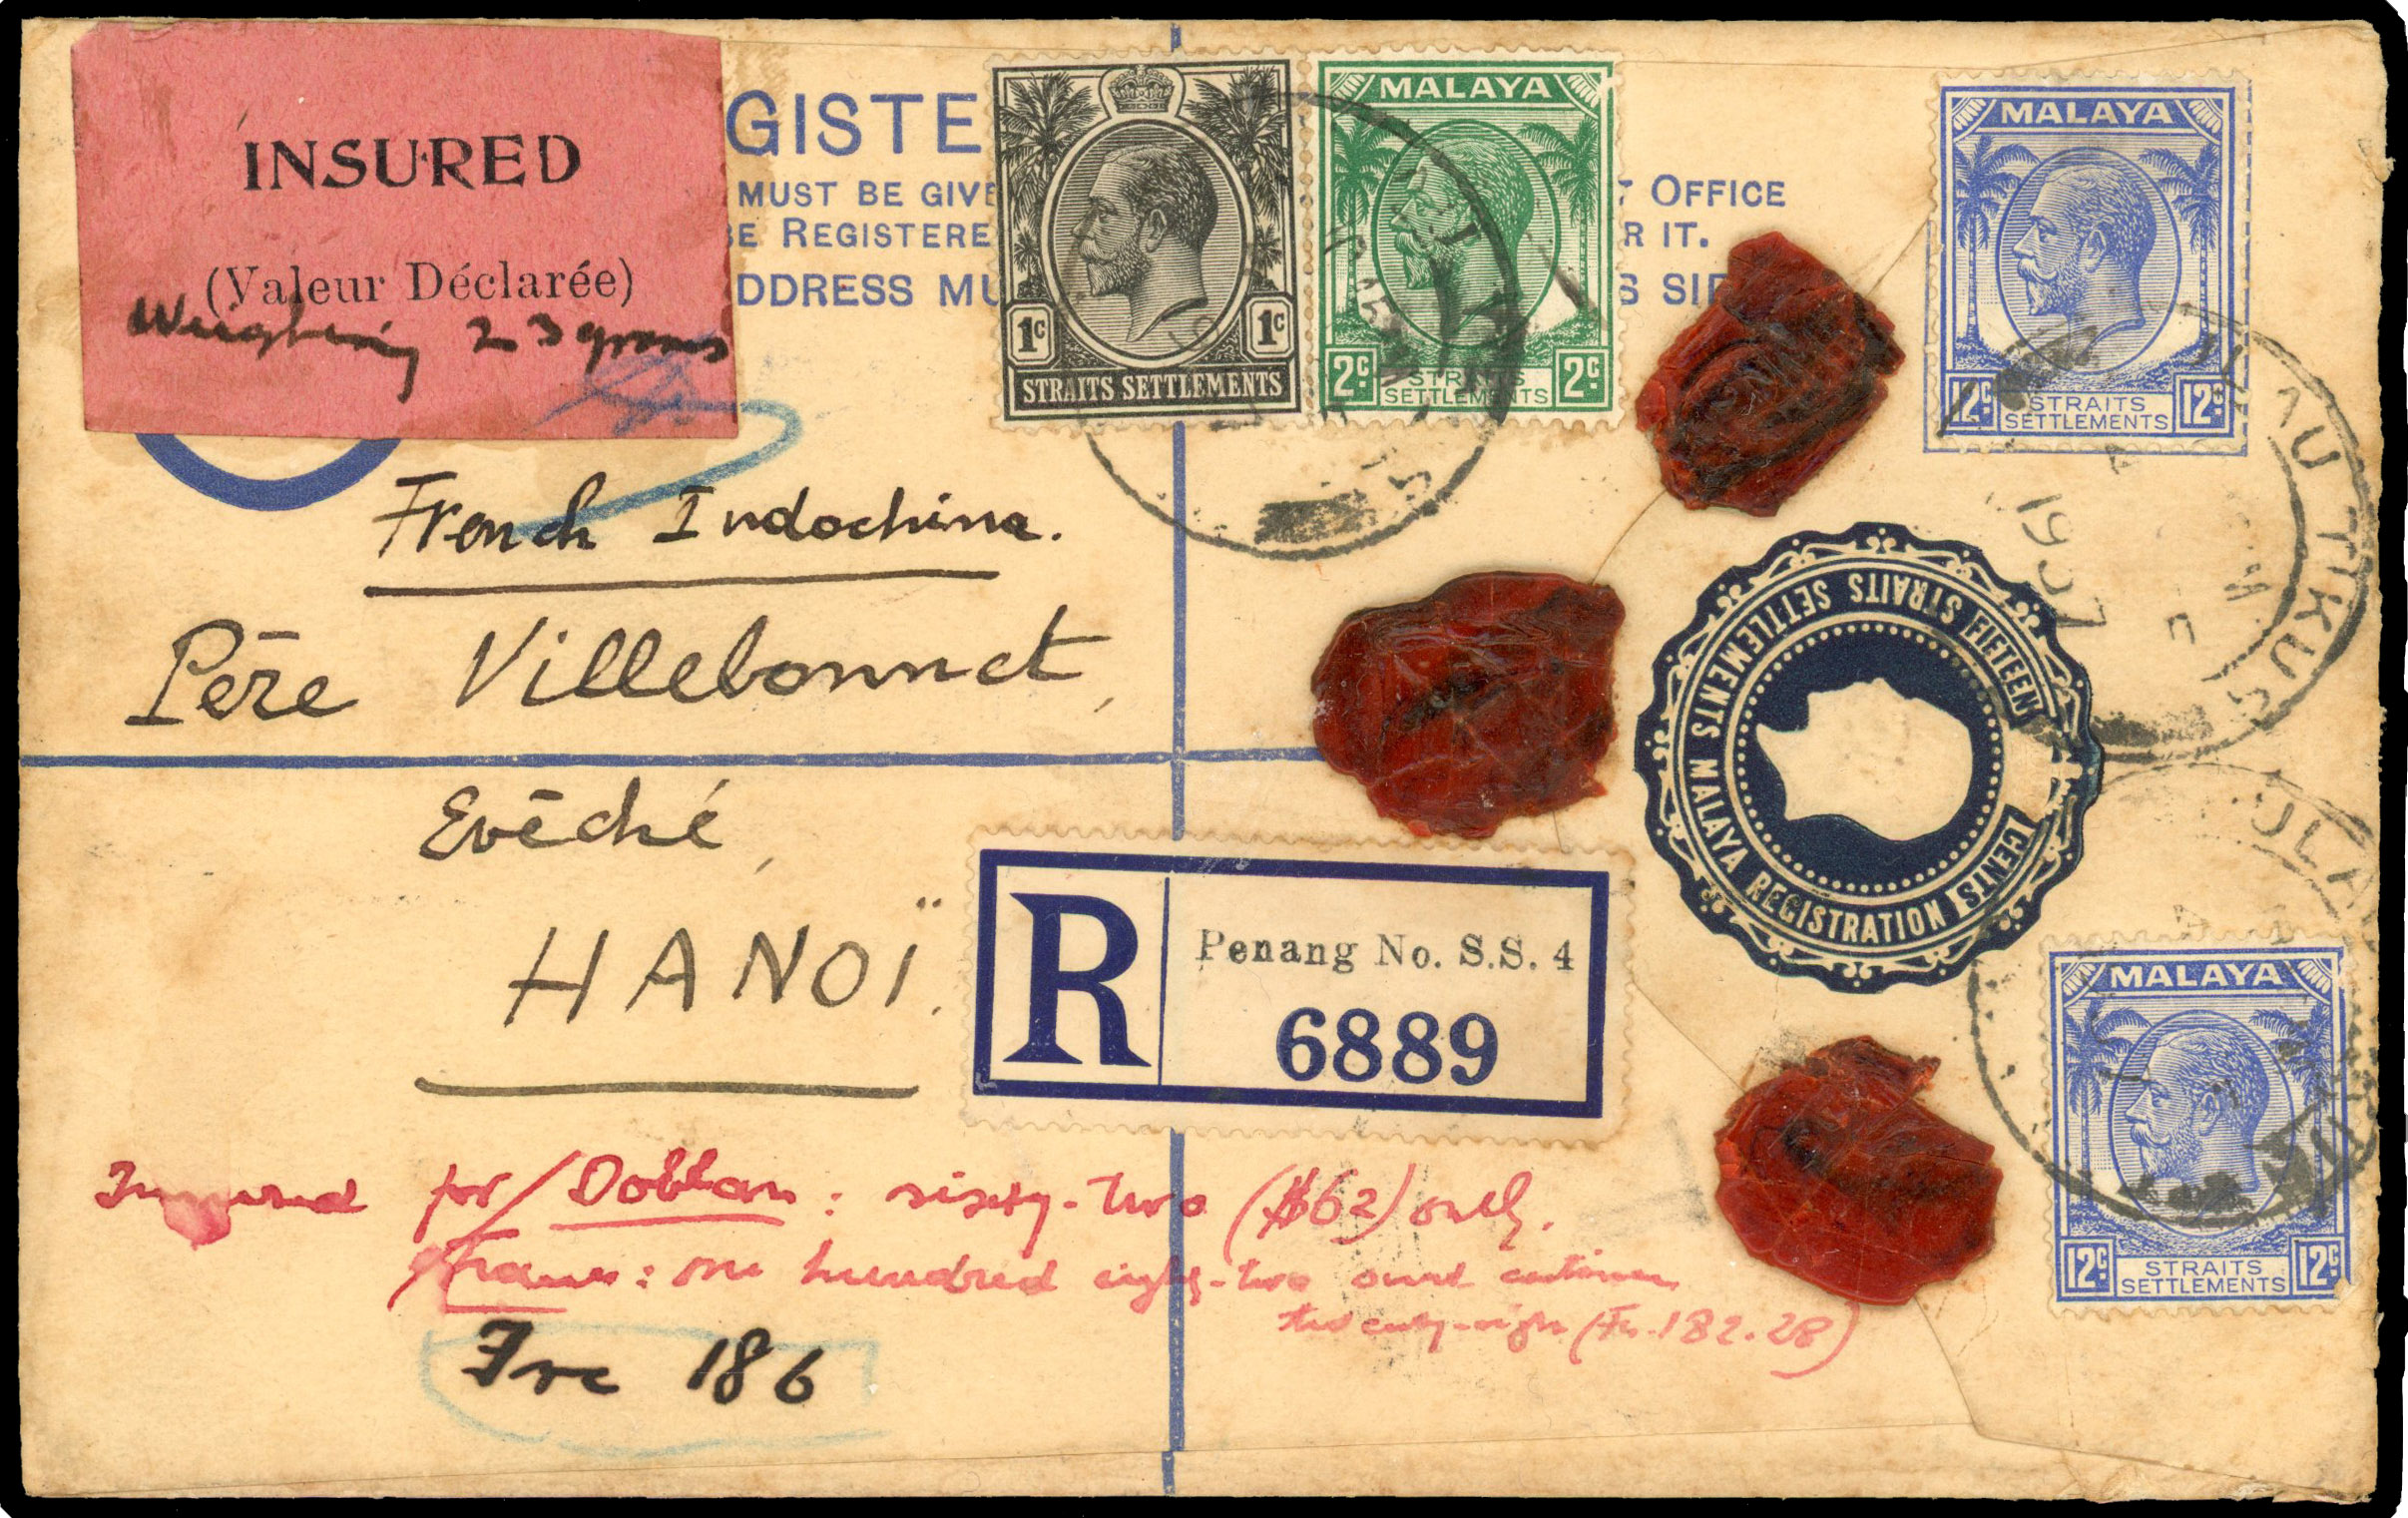 INSURED
(Valeur Déclarée)
Weighing 23 grams
GISTE
MUST BE GIVE
OFFICE
BE REGISTERE
R IT.
DDRESS MU
S SID
1c 1c
STRAITS SETTLEMENTS
MALAYA
2c STRAITS SETTLEMENTS 2c
MALAYA
12c STRAITS SETTLEMENTS 12c
PULAU TIKUS
1937
French Indochina.
Père Villebonnet,
Evêché,
HANOÏ.
STRAITS SETTLEMENTS MALAYA REGISTRATION
FIFTEEN CENTS
R
Penang No. S.S. 4
6889
MALAYA
12c STRAITS SETTLEMENTS 12c
Insured for Dollars: sixty-two ($62) only.
Francs: one hundred eighty-two and centimes
twenty-eight (Fr. 182.28)
Frc 186